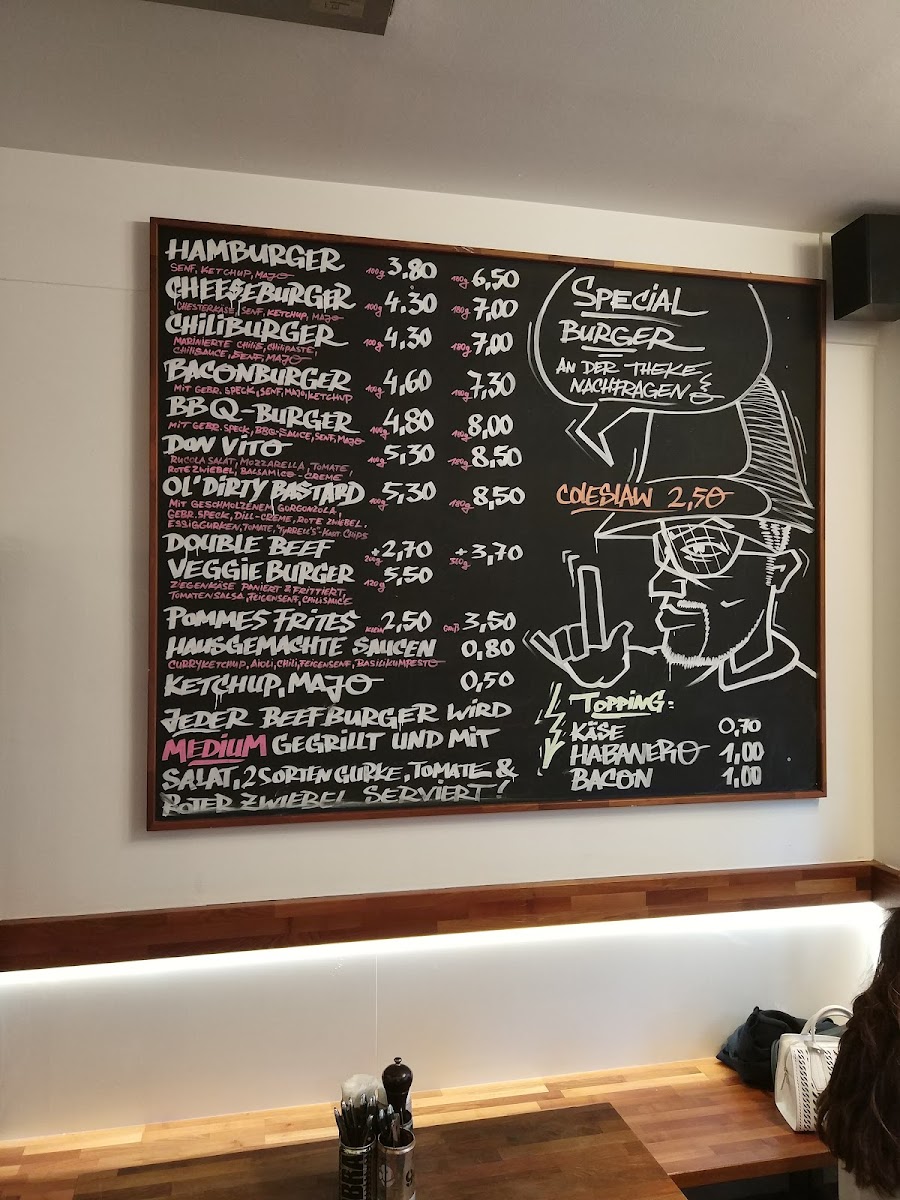 HAMBURGER 100g 3,80 180g 6,50
SENF, KETCHUP, MAJO
CHEESEBURGER 100g 4,30 180g 7,00
CHESTERKÄSE, SENF, KETCHUP, MAJO
CHILIBURGER 100g 4,30 180g 7,00
MARINIERTE CHILIS, CHILIPASTE,
CHILISAUCE, SENF, MAJO
BACONBURGER 100g 4,60 180g 7,30
MIT GEBR. SPECK, SENF, MAJO, KETCHUP
BBQ-BURGER 100g 4,80 180g 8,00
MIT GEBR. SPECK, BBQ-SAUCE, SENF, MAJO
DON VITO 100g 5,30 180g 8,50
RUCOLA SALAT, MOZZARELLA, TOMATE,
ROTE ZWIEBEL, BALSAMICO-CREME
OL' DIRTY BASTARD 100g 5,30 180g 8,50
MIT GESCHMOLZENEM GORGONZOLA,
GEBR. SPECK, DILL-CREME, ROTE ZWIEBEL,
ESSIGGURKEN, TOMATE, TYRRELL'S-KART. CHIPS
DOUBLE BEEF 200g +2,70 360g +3,70
VEGGIE BURGER 120g 5,50
ZIEGENKÄSE PANIERT & FRITTIERT,
TOMATENSALSA, FEIGENSENF, CHILISAUCE
POMMES FRITES KLEIN 2,50 GROß 3,50
HAUSGEMACHTE SAUCEN 0,80
CURRYKETCHUP, AIOLI, CHILI, FEIGENSENF, BASILIKUMPESTO
KETCHUP, MAJO 0,50
JEDER BEEFBURGER WIRD
MEDIUM GEGRILLT UND MIT
SALAT, 2 SORTEN GURKE, TOMATE &
ROTER ZWIEBEL SERVIERT!
SPECIAL
BURGER
AN DER THEKE
NACHFRAGEN
COLESLAW 2,50
TOPPING:
KÄSE 0,70
HABANERO 1,00
BACON 1,00